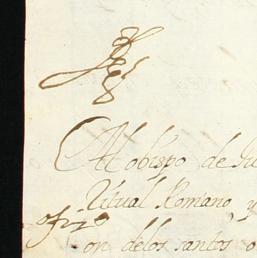 Al obispo de
Ritual Romano y
ofizo
on delos santos o